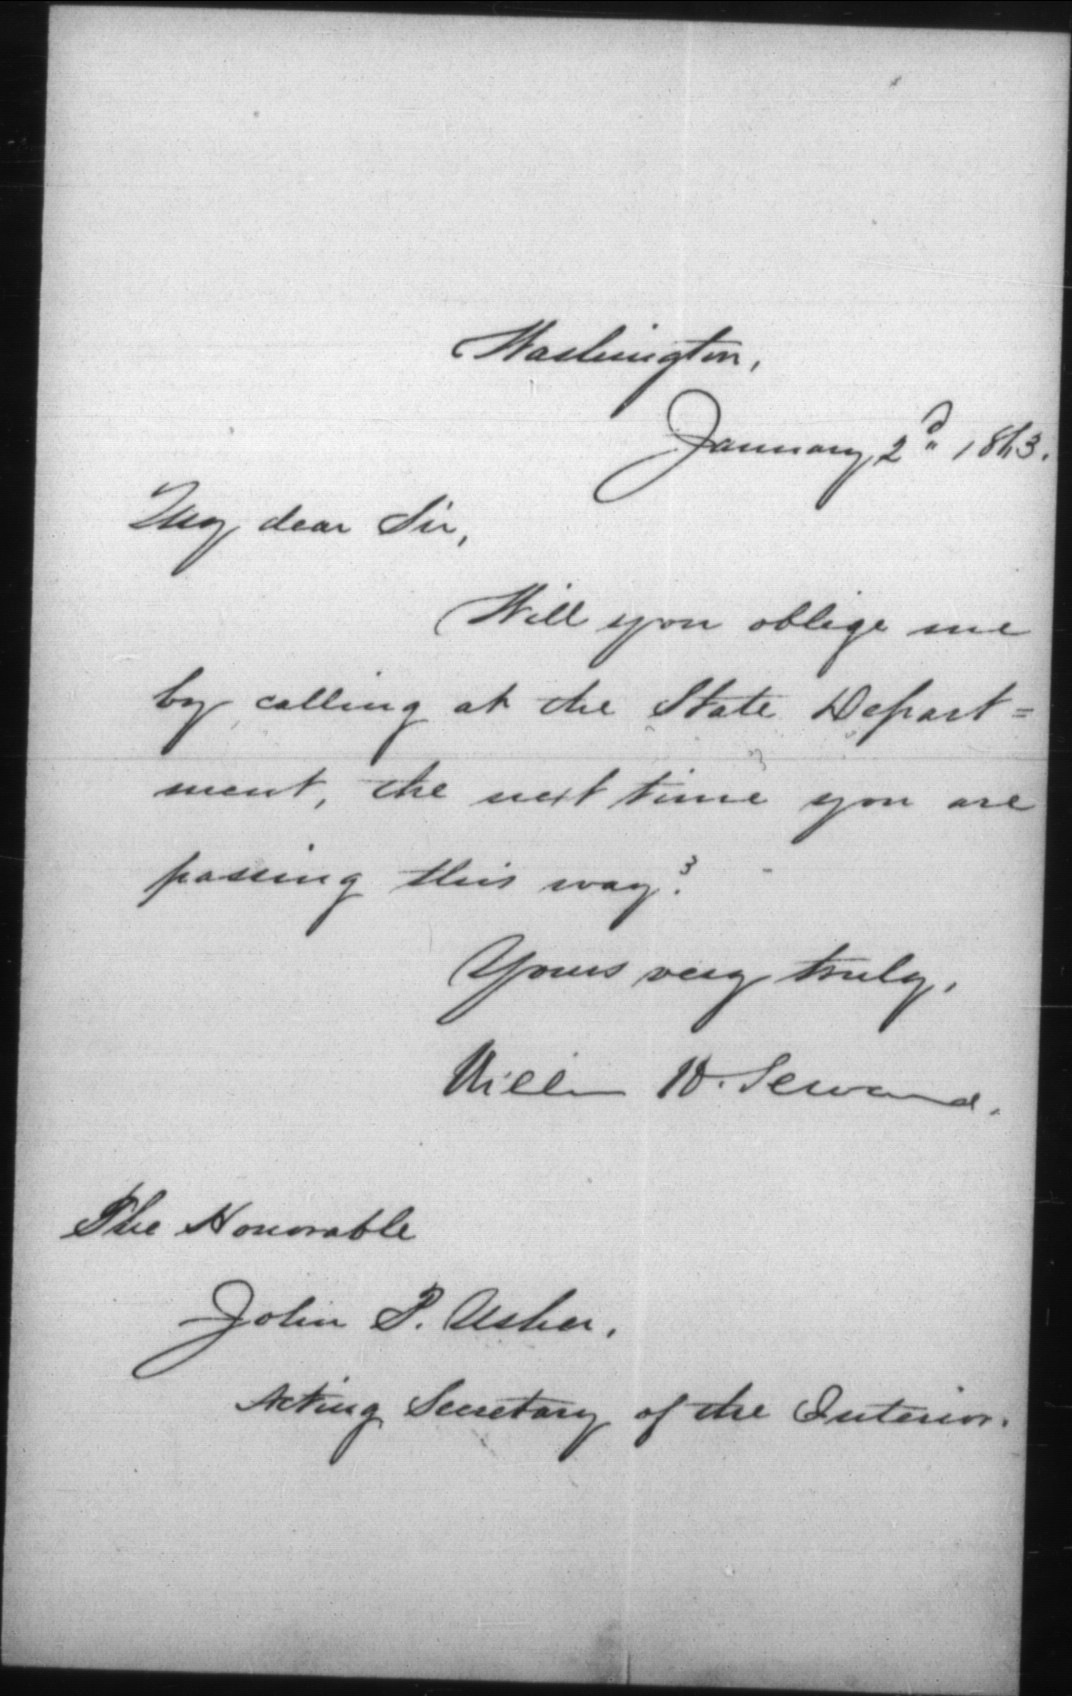 Washington,
January 2d 1863.
My dear Sir,
Will you oblige me
by calling at the State Depart=
ment, the next time you are
passing this way?
Yours very truly,
William H. Seward.
The Honorable
John P. Usher,
Acting Secretary of the Interior.